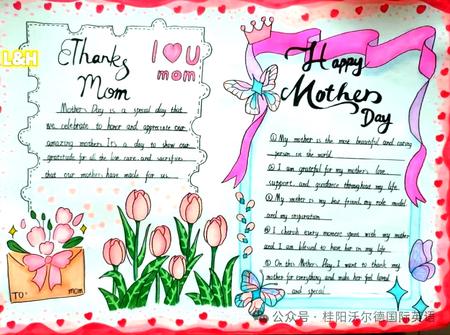 L&H
Thanks
Mom
I U
mom
Mother's Day is a special day that
we celebrate to honor and appreciate our
amazing mothers. It's a day to show our
gratitude for all the love, care, and sacrifices
that our mothers have made for us.
TO:
mom
Happy
Mother's
Day
① My mother is the most beautiful and caring
person in the world.
② I am grateful for my mother's love,
support, and guidance throughout my life.
③ My mother is my best friend, my role model
and my inspiration.
④ I cherish every moment spent with my mother
and I am blessed to have her in my life.
⑤ On this Mother's Day, I want to thank my
mother for everything and make her feel loved
and special.
公众号 · 桂阳沃尔德国际英语